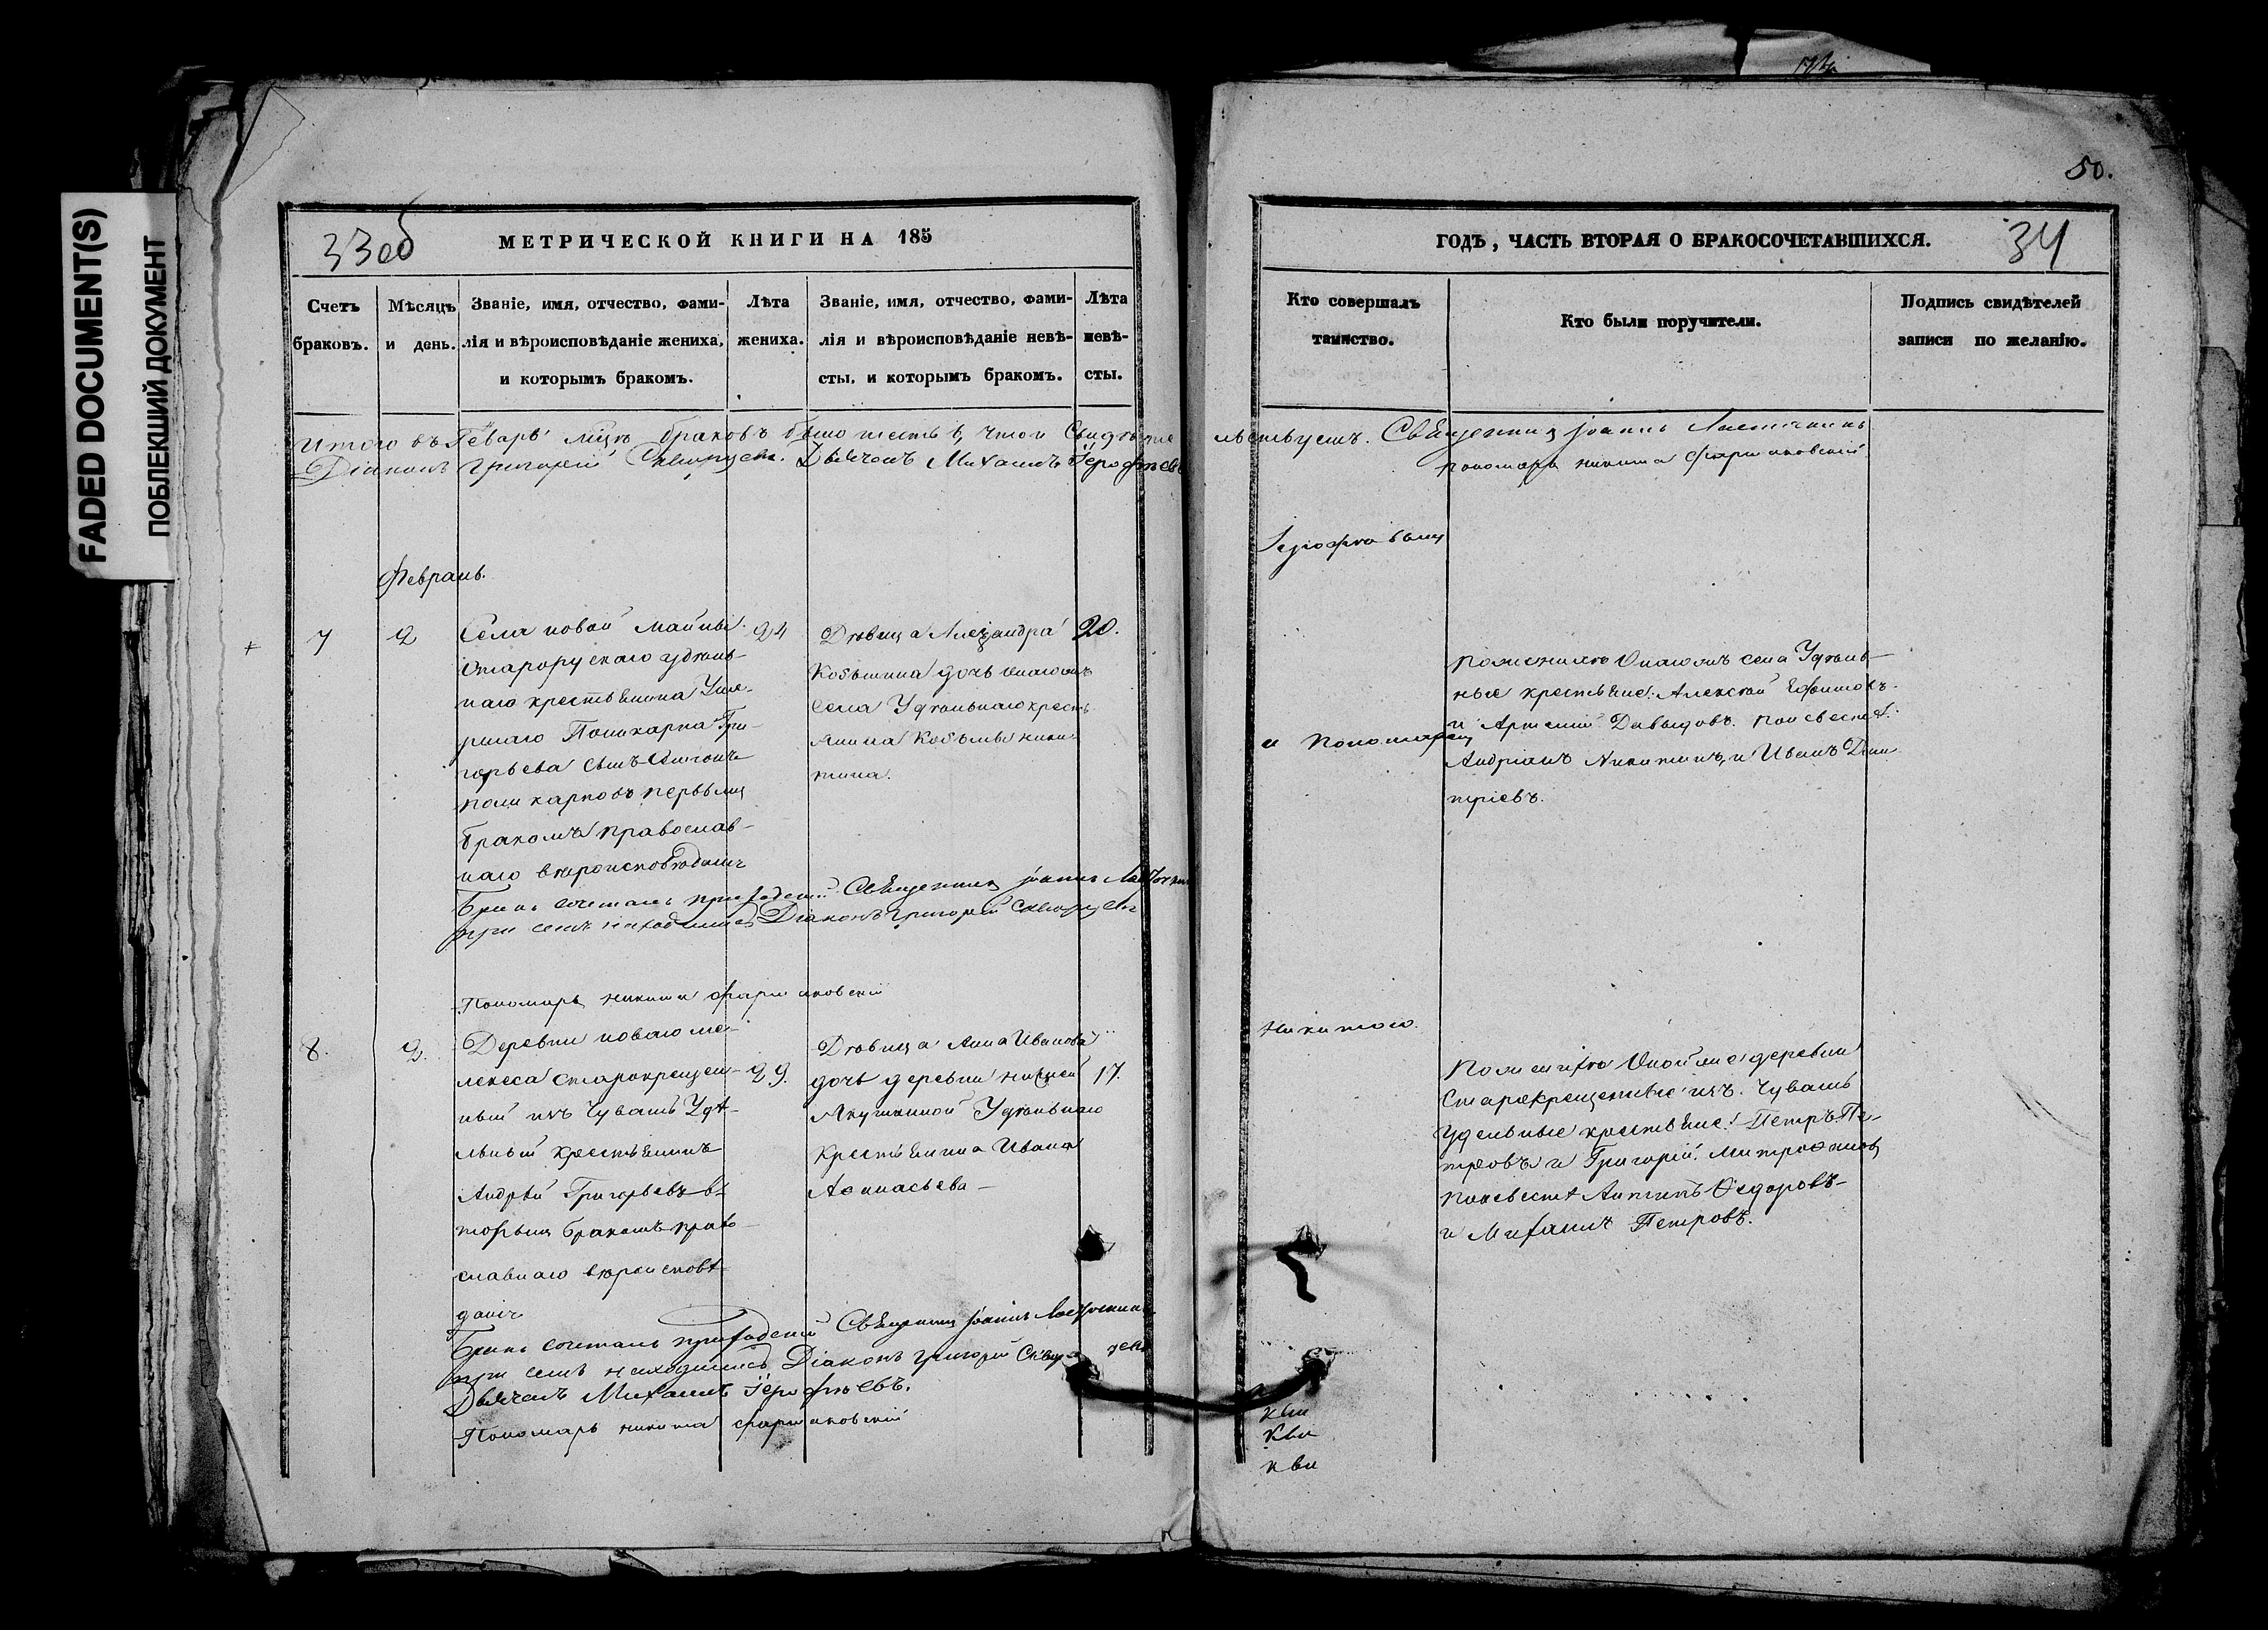 FADED DOCUMENT(S)
ПОБЛЕКШИЙ ДОКУМЕНТ
33об
МЕТРИЧЕСКОЙ КНИГИ НА 185
Счетъ браковъ.
Мѣсяцъ и день.
Званіе, имя, отчество, фами-
лія и вѣроисповѣданіе жениха,
и которымъ бракомъ.
Лѣта
жениха.
Званіе, имя, отчество, фами-
лія и вѣроисповѣданіе невѣ-
сты, и которымъ бракомъ.
Лѣта
невѣ-
сты.
Итого въ браковъ было шесть, въ томъ Свидѣтель
Діаконъ Григорій Дьячекъ Михаилъ Іерофѣевъ
Февраль.
7
2
Села новой майны
Старорускаго удѣль-
наго крестьянина Уме-
ршаго Поликарпа Гри-
горьева сынъ
поликарповъ первымъ
бракомъ православ-
наго вѣроисповѣданія
24
Дѣвица Александра
Козьмина дочь онагожъ
села Удѣльнаго кресть
янина Козьмы ники
тина.
20.
Бракъ сочеталъ приходскій Священникъ Іоаннъ
при семъ находились Діаконъ Григорій
Пономарь никита
8.
2.
Деревни новаго ме-
лекеса старокрещен-
ный изъ Чувашъ Удѣ-
льный крестьянинъ
Андрей Григорьевъ в-
торымъ бракомъ прав-
славнаго вѣроисповѣ-
данія
29.
Дѣвица Анна Иванова
дочь деревни нижней
Якушкиной Удѣльнаго
крестьянина Ивана
Аѳанасьева
17.
Бракъ сочеталъ приходскій Священникъ Іоаннъ
при семъ находились Діаконъ Григорій
Дьячекъ Михаилъ Іерофѣевъ.
Пономарь никита
50.
ГОДЪ, ЧАСТЬ ВТОРАЯ О БРАКОСОЧЕТАВШИХСЯ.
34
Кто совершалъ
таинство.
Кто были поручители.
Подпись свидѣтелей
записи по желанію.
льствуемъ. Священникъ Іоаннъ
пономарь никита
и Пономаремъ
По женихѣ Онагожъ села Удѣль-
ные крестьяне: Алексѣй Ефимовъ
и Артемій Давыдовъ. по невестѣ:
Андріанъ Никитинъ, и Иванъ Дми
тріевъ.
Никитою.
По женихѣ Оной же деревни
Старокрещенные изъ Чувашъ
Удельные крестьяне: Петръ Пе-
тровъ и Григорій Митрофановъ
по невестѣ Антипъ Ѳедоровъ
и Михаилъ Петровъ.